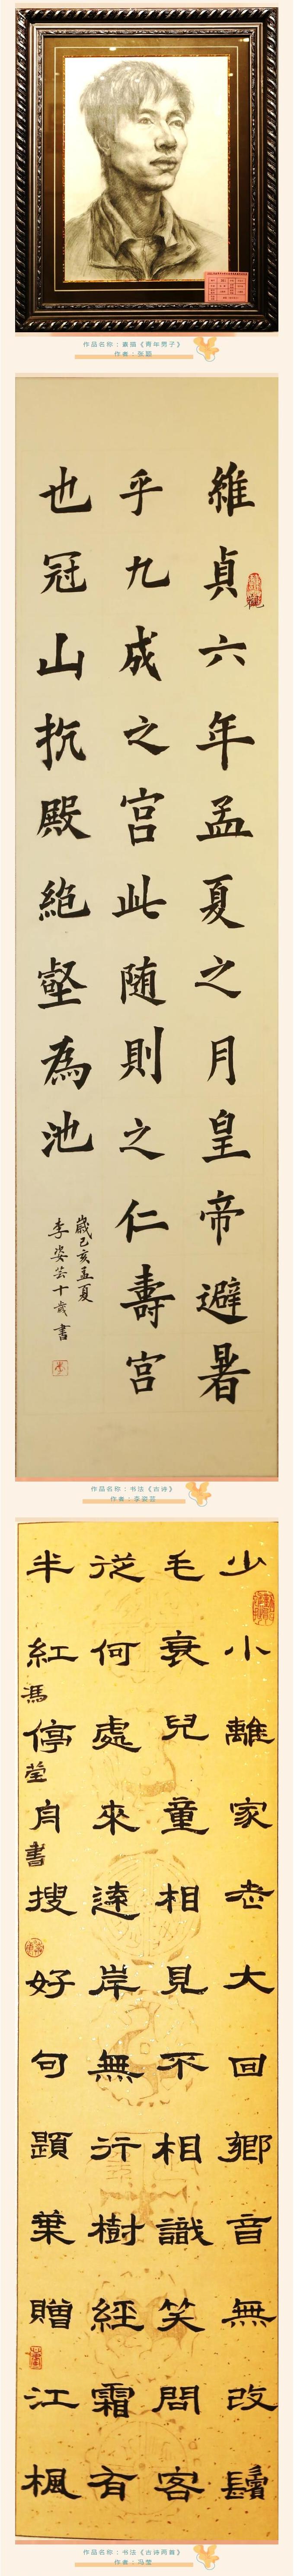 作品名称：素描《青年男子》
作者：张
維貞六年孟夏之月皇帝避暑
乎九成之宮此随則之仁壽宮
也冠山抗殿絕壑為池
歲己亥孟夏
李姿芸十歲書
作品名称：书法《古诗》
作者：李姿芸
少小離家老大回鄉音無改鬢
毛衰兒童相見不相識笑問客
從何處來遠岸無行樹經霜有
半紅停舟搜好句題葉贈江楓
馮莹書
作品名称：书法《古诗两首》
作者：冯莹